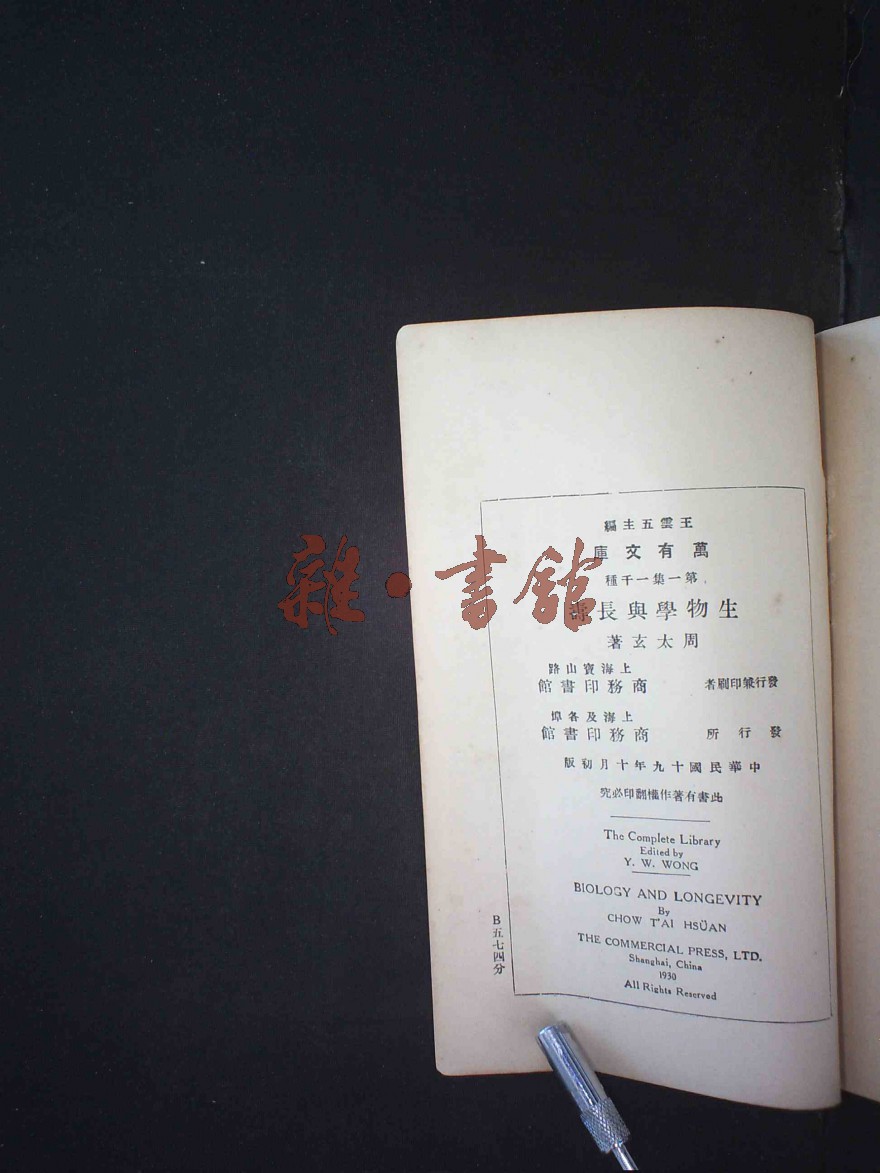 王雲五主編
萬有文庫
第一集一千種
生物學與長壽
周太玄著
發行兼印刷者
上海寶山路
商務印書館
發行所
上海及各埠
商務印書館
中華民國十九年十月初版
此書有著作權翻印必究
The Complete Library
Edited by
Y. W. WONG
BIOLOGY AND LONGEVITY
By
CHOW T'AI HSÜAN
THE COMMERCIAL PRESS, LTD.
Shanghai, China
1930
All Rights Reserved
B五七四分
雜·書館